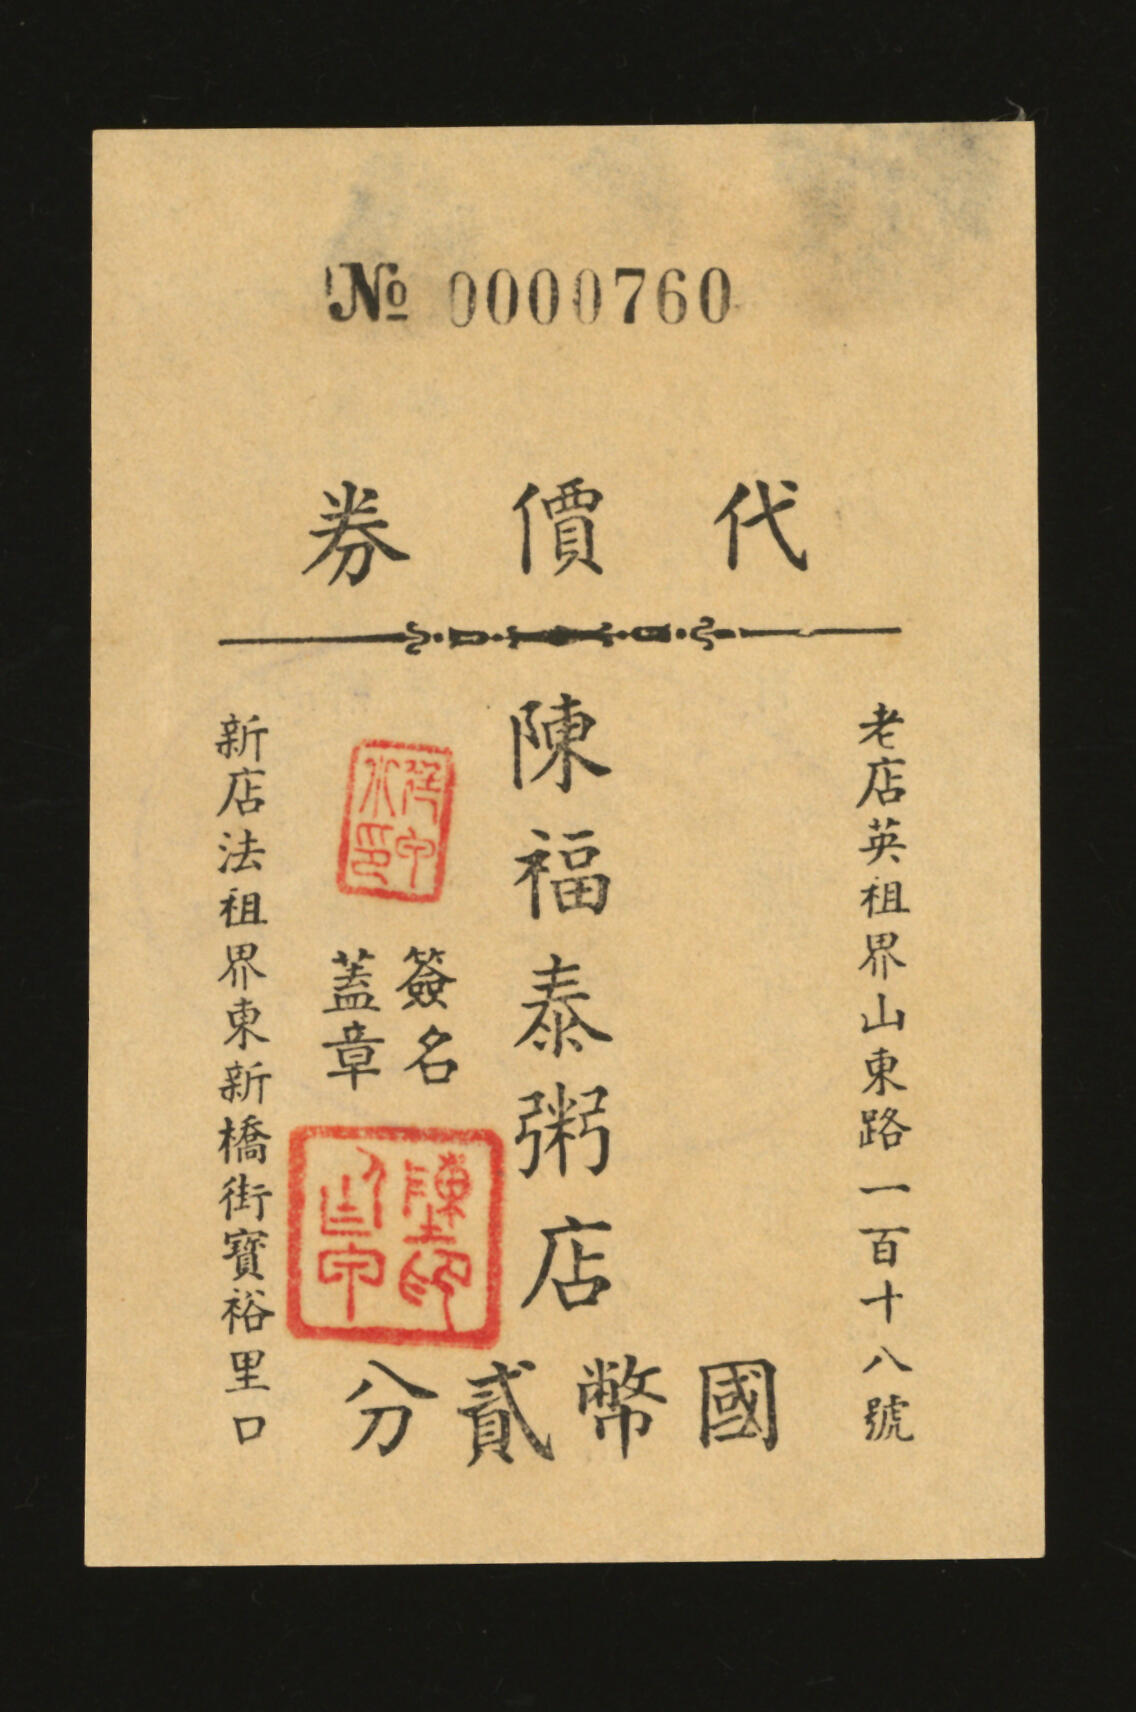 № 0000760
代價券
老店英租界山東路一百十八號
陳福泰粥店
簽名
蓋章
新店法租界東新橋街寶裕里口
國幣貳分